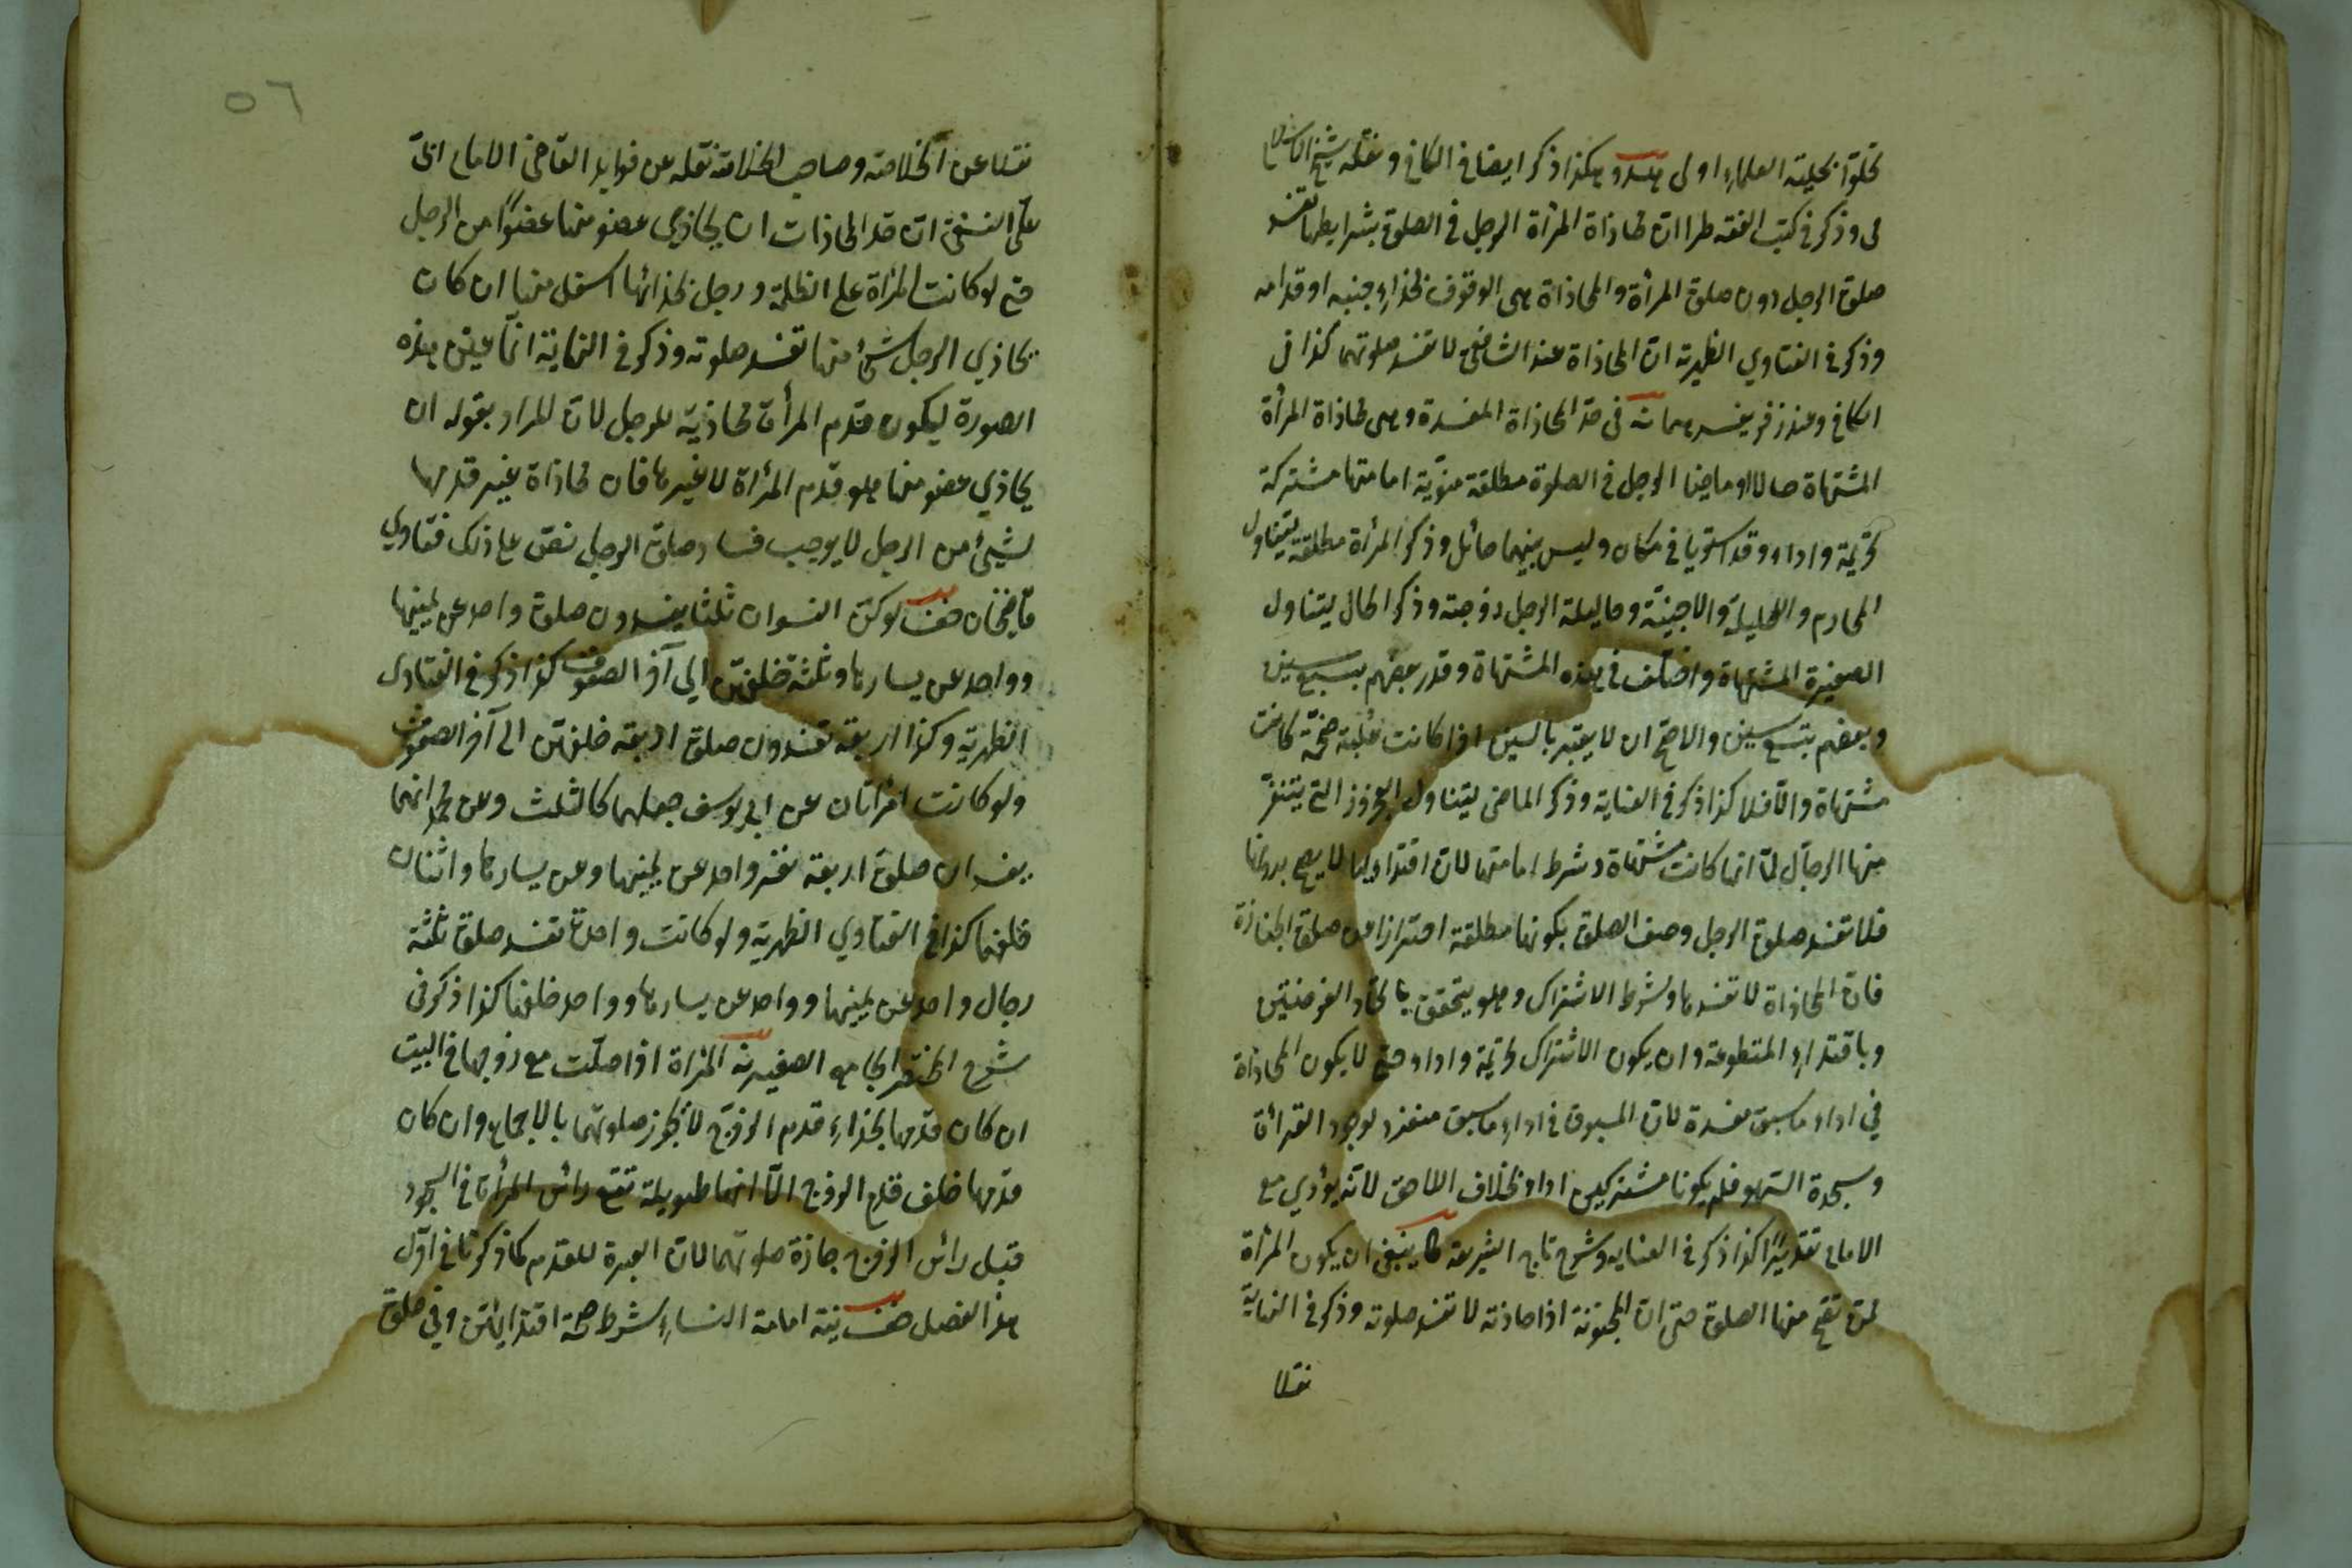 تحلوا بحلية العلماء اولى هكذا ذكر ايضا في الكافي ونقله شيخ الاسلام
وذكر في كتب الفقه طرا ان محاذاة المرأة الرجل في الصلوة بشرايطها تفسد
صلوة الرجل دون صلوة المرأة والمحاذاة هي الوقوف بحذاء جنبه او قدامه
وذكر في الفتاوي الظهيرية ان المحاذاة عند الشافعي لا تفسد صلوتهما كذا في
الكافي وعند زفر في حد المحاذاة المفسدة وهي محاذاة المرأة
المشتهاة حالا او ماضيا الرجل في الصلوة مطلقة منويّة امامتها مشتركة
تحريمة واداء وقد استويا في مكان وليس بينهما حائل وذكر المرأة مطلقة ليتناول
المحارم والحليلة والاجنبيّة وحليلة الرجل زوجته وذكر الحال ليتناول
الصغيرة المشتهاة واختلف في هذه المشتهاة وقدر بعضهم بسبع سنين
وبعضهم بتسع سنين والاصح ان لا يعتبر بالسنين اذا كانت عبلة ضخمة كانت
مشتهاة والّا فلا كذا ذكر في العناية وذكر الماضي ليتناول العجوز التي يتنفر
منها الرجال لما انها كانت مشتهاة وشرط امامتها لان اقتداءها لا يصح بدونها
فلا تفسد صلوة الرجل وصف الصلوة بكونها مطلقة احترازا من صلوة الجنازة
فان المحاذاة لا تفسدها وشرط الاشتراك وهو يتحقق باتحاد الفرضيتين
وباقتداء المتطوعة وان يكون الاشتراك تحريمة واداء حتى لا يكون المحاذاة
في اداء ما سبق مفسدة لان المسبوق في اداء ما سبق منفرد لوجود القرائة
وسجدة السهو فلم يكونا مشتركين اداء بخلاف اللاحق لانه يؤدي مع
الامام تقديرًا كذا ذكر في العناية وشرح تاج الشريعة ينبغي ان يكون المرأة
لمن تصح منها الصلوة حتى ان المجنونة اذا حاذته لا تفسد صلوته وذكر في النهاية
نقلا
٥٦
نقلا عن الخلاصة وصاحب الخلاصة نقله عن فوايد القاضي الامام ابي
علي النسفي ان حد المحاذات ان يحاذي عضو منها عضوًا من الرجل
حتى لو كانت المرأة على الظلة ورجل بحذائها اسفل منها ان كان
يحاذي الرجل شئ منها تفسد صلوته وذكر في النهاية انما عين هذه
الصورة ليكون قدم المرأة محاذية للرجل لان المراد بقوله ان
يحاذي عضو منها هو قدم المرأة لا غيرها فان محاذاة غير قدمها
لشيئ من الرجل لا يوجب فساد صلوة الرجل نص على ذلك فتاوي
قاضيخان لو كن النسوان ثلثا يفسدون صلوة واحد عن يمينها
وواحد عن يسارها وثلثة خلفهن الي آخر الصفوف كذا ذكر في الفتاوى
الظهرية وكذا اربعة تفسدون صلوة اربعة خلفهن الى آخر الصفوف
ولو كانت امرأتان عن ابي يوسف جعلهما كالثلث وعن محمد انهما
يفسدان صلوة اربعة نفر واحد عن يمينها وعن يسارها واثنان
خلفهما كذا في الفتاوي الظهرية ولو كانت واحدة تفسد صلوة ثلثة
رجال واحد عن يمينها وواحد عن يسارها وواحد خلفها كذا ذكر في
شرح المختصر الجامع الصغير المرأة اذا صلت مع زوجها في البيت
ان كان قدمها بحذاء قدم الزوج لا تجوز صلوتهما بالاجماع وان كان
قدمها خلف قدم الزوج الّا انها طويلة تقع رأس المرأة في السجود
قبل رأس الزوج جازة صلوتهما لان العبرة للقدم كما ذكرنا في اوّل
هذا الفصل نية امامة النساء شرط صحة اقتدائهن وفي صلوة